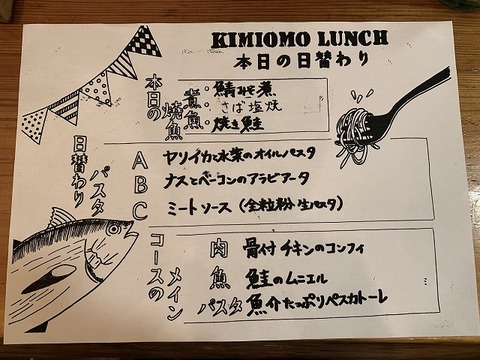 KIMIOMO LUNCH
本日の日替わり
本日の
煮魚
焼魚
・鯖みそ煮
・さば塩焼
・焼き鮭
日替わり
パスタ
A ヤリイカと水菜のオイルパスタ
B ナスとベーコンのアラビアータ
C ミートソース(全粒粉生パスタ)
コースの
メイン
肉 骨付チキンのコンフィ
魚 鮭のムニエル
パスタ 魚介たっぷりペスカトーレ